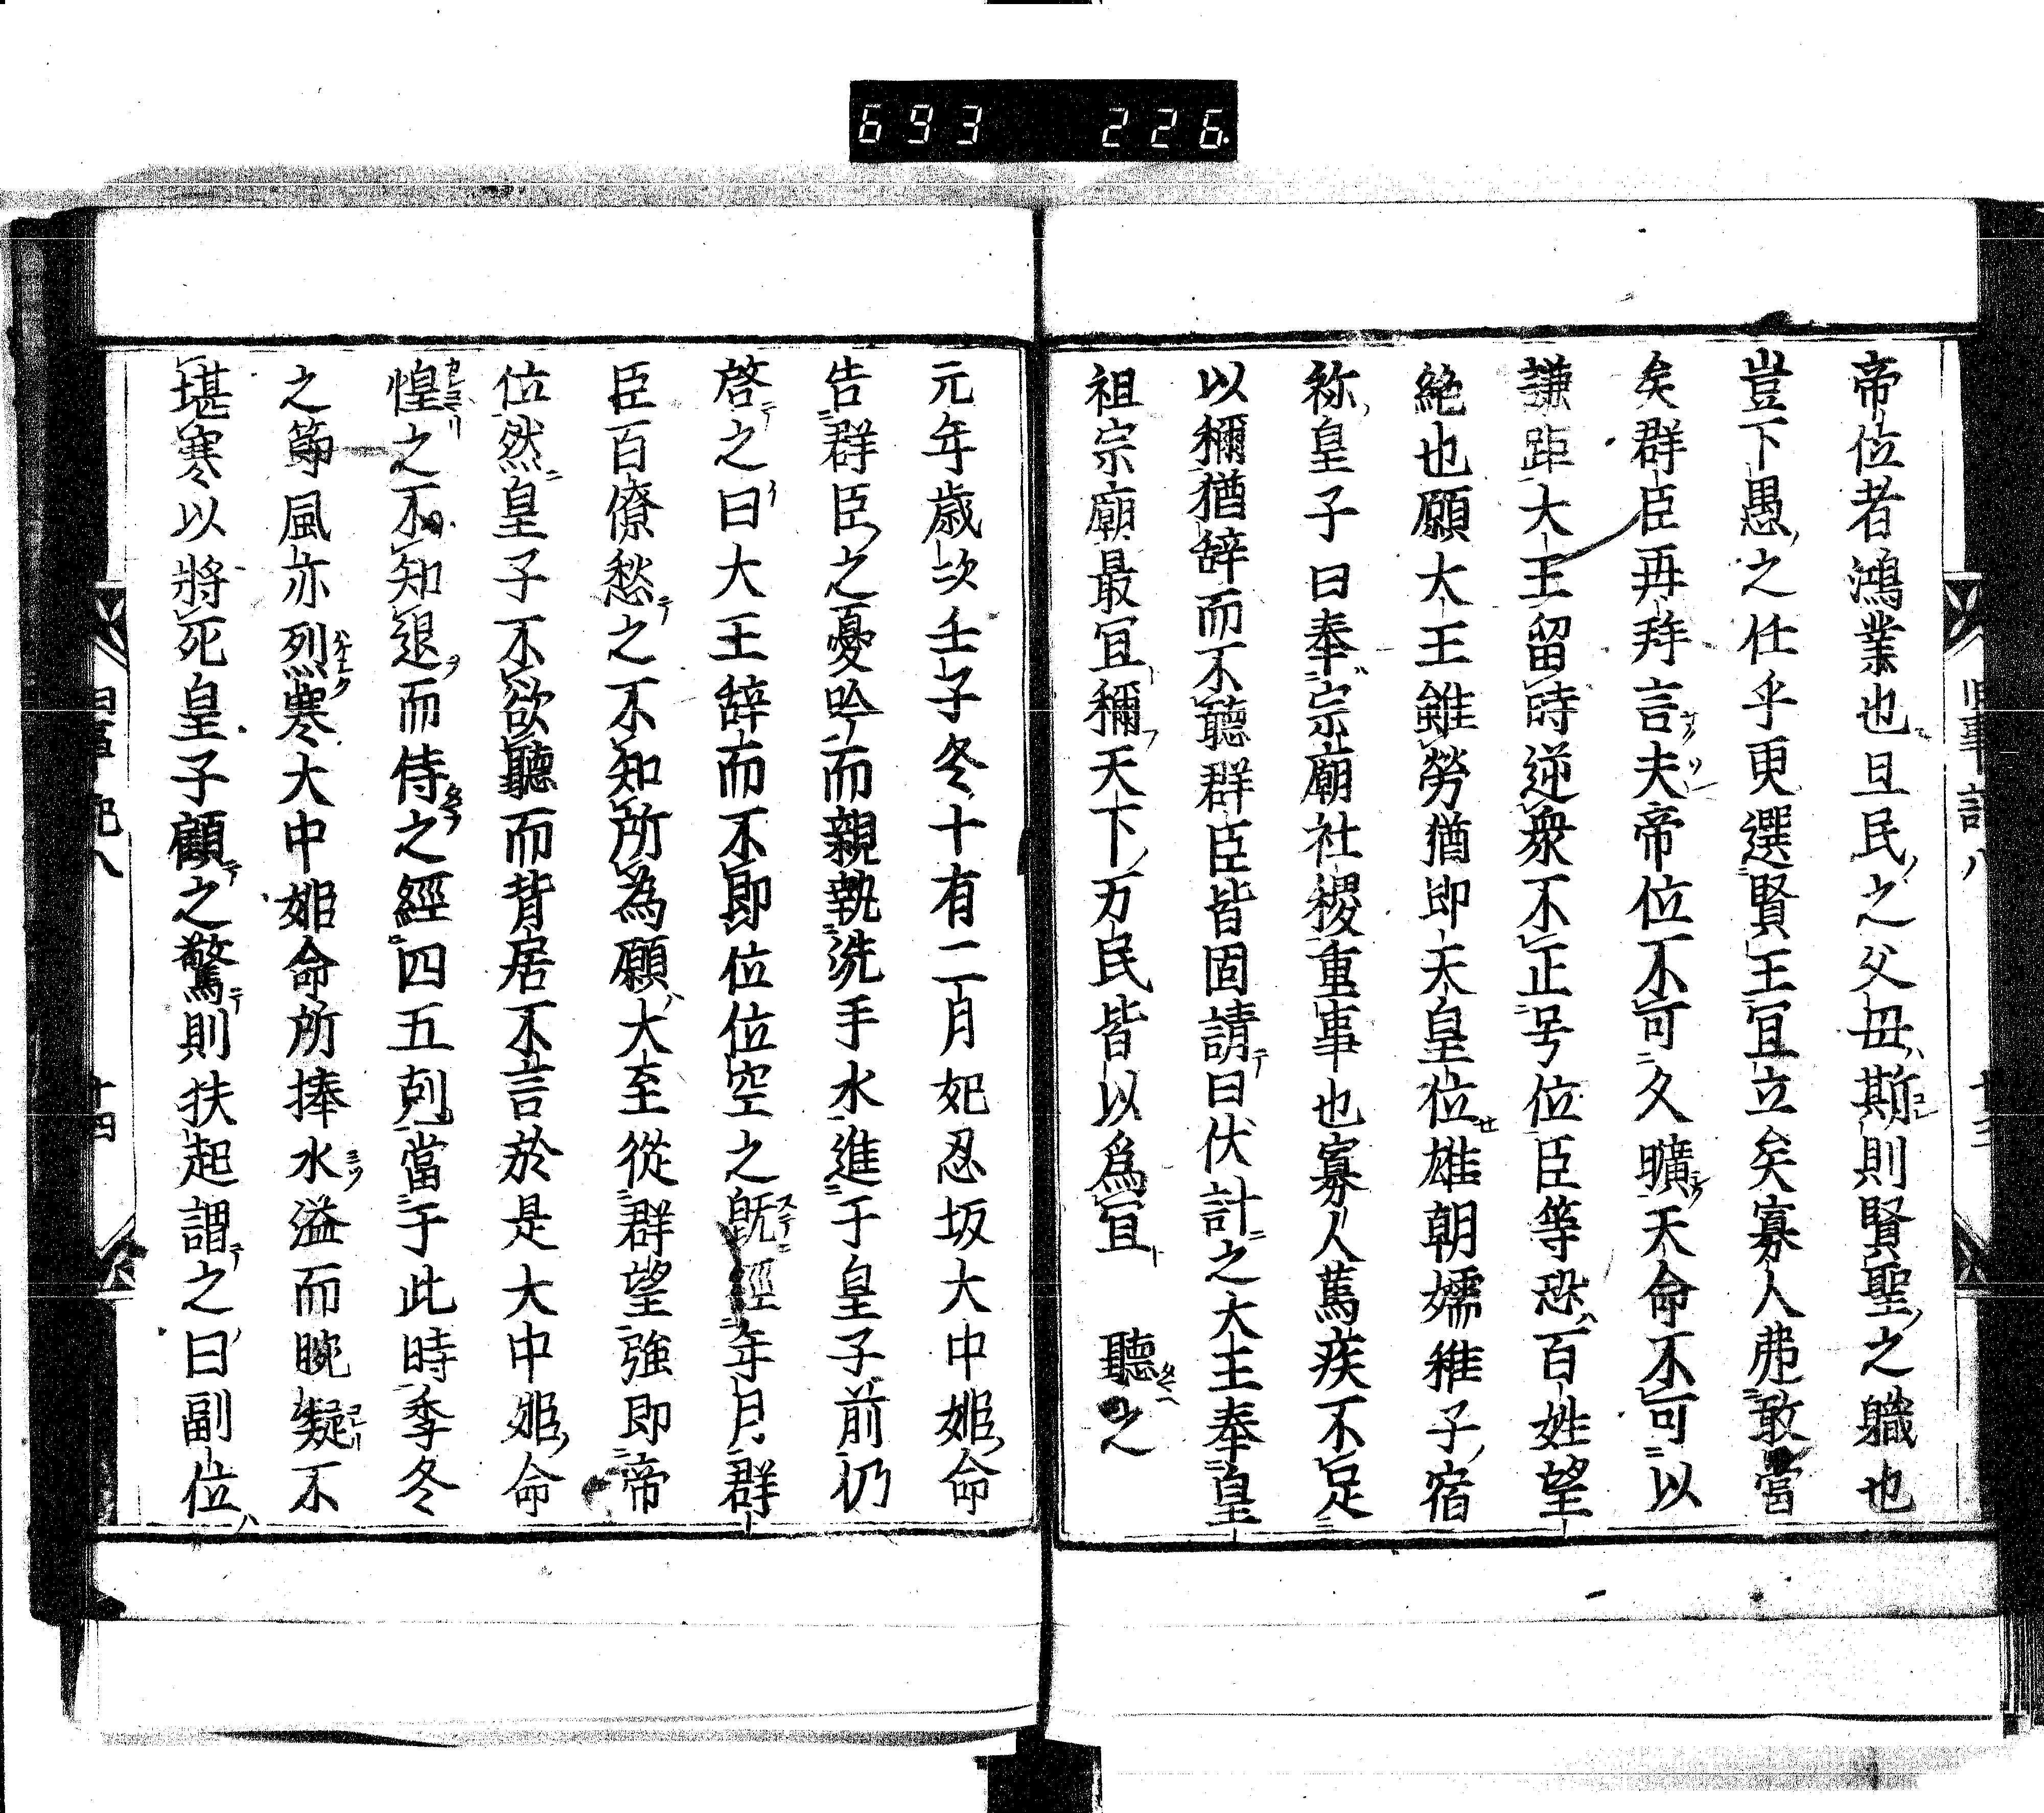 693 226
帝位者鴻業也且民之父母斯則賢聖之職也
豈下愚之任乎更選賢王宜立矣寡人弗敢當
矣群臣再拜言夫帝位不可久曠天命不可以
謙距大王留時逆衆不正号位臣等恐百姓望
絶也願大王雖勞猶即天皇位雄朝嬬稚子宿
祢皇子曰奉宗廟社稷重事也寡人篤疾不足
以稱猶辞而不聽群臣皆固請曰伏計之大王奉皇
祖宗廟最宜稱天下万民皆以爲宜 聽之
元年歳次壬子冬十有二月妃忍坂大中姫命
告群臣之憂吟而親執洗手水進于皇子前仍
啓之曰大王辞而不即位位空之既經年月群
臣百僚愁之不知所為願大至從群望強即帝
位然皇子不欲聽而背居不言於是大中姫命
惶之不知退而侍之經四五剋當于此時季冬
之節風亦烈寒大中姫命所捧水溢而腕凝不
堪寒以將死皇子顧之驚則扶起謂之曰副位
旧事記八 十三
旧事紀八 十四